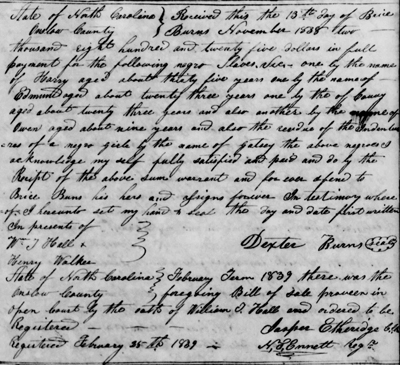 State of North Carolina } Received this the 13th day of Brice
Onslow County } Burns November 1838 two
thousand eight hundred and twenty five dollars in full
payment for the following negro Slaves, one by the name
of Harry aged about thirty five years one by the name of
Edmund aged about twenty three years one by the of
aged about twenty three years and also another by the name of
Owen aged about nine years and also the of the
of a negro girl by the name of the above negroes I
acknowledge my self fully satisfied and paid and do by the
Receipt of the above sum warrant and for ever defend to
Brice Burns his hers and assigns forever In testimony where
of I hereunto sets my hand & seal the day and date first written
In presents of
Wm J Hall & Dexter Burns (Seal)
Henry Walker
State of North Carolina } February Term 1839 there was the
Onslow County } foregoing Bill of Sale proveen in
open Court by the oath of William J Hall and ordered to be
Registered Jasper Etheridge
Registered February 28th 1839 N.S. Ennett Regr.